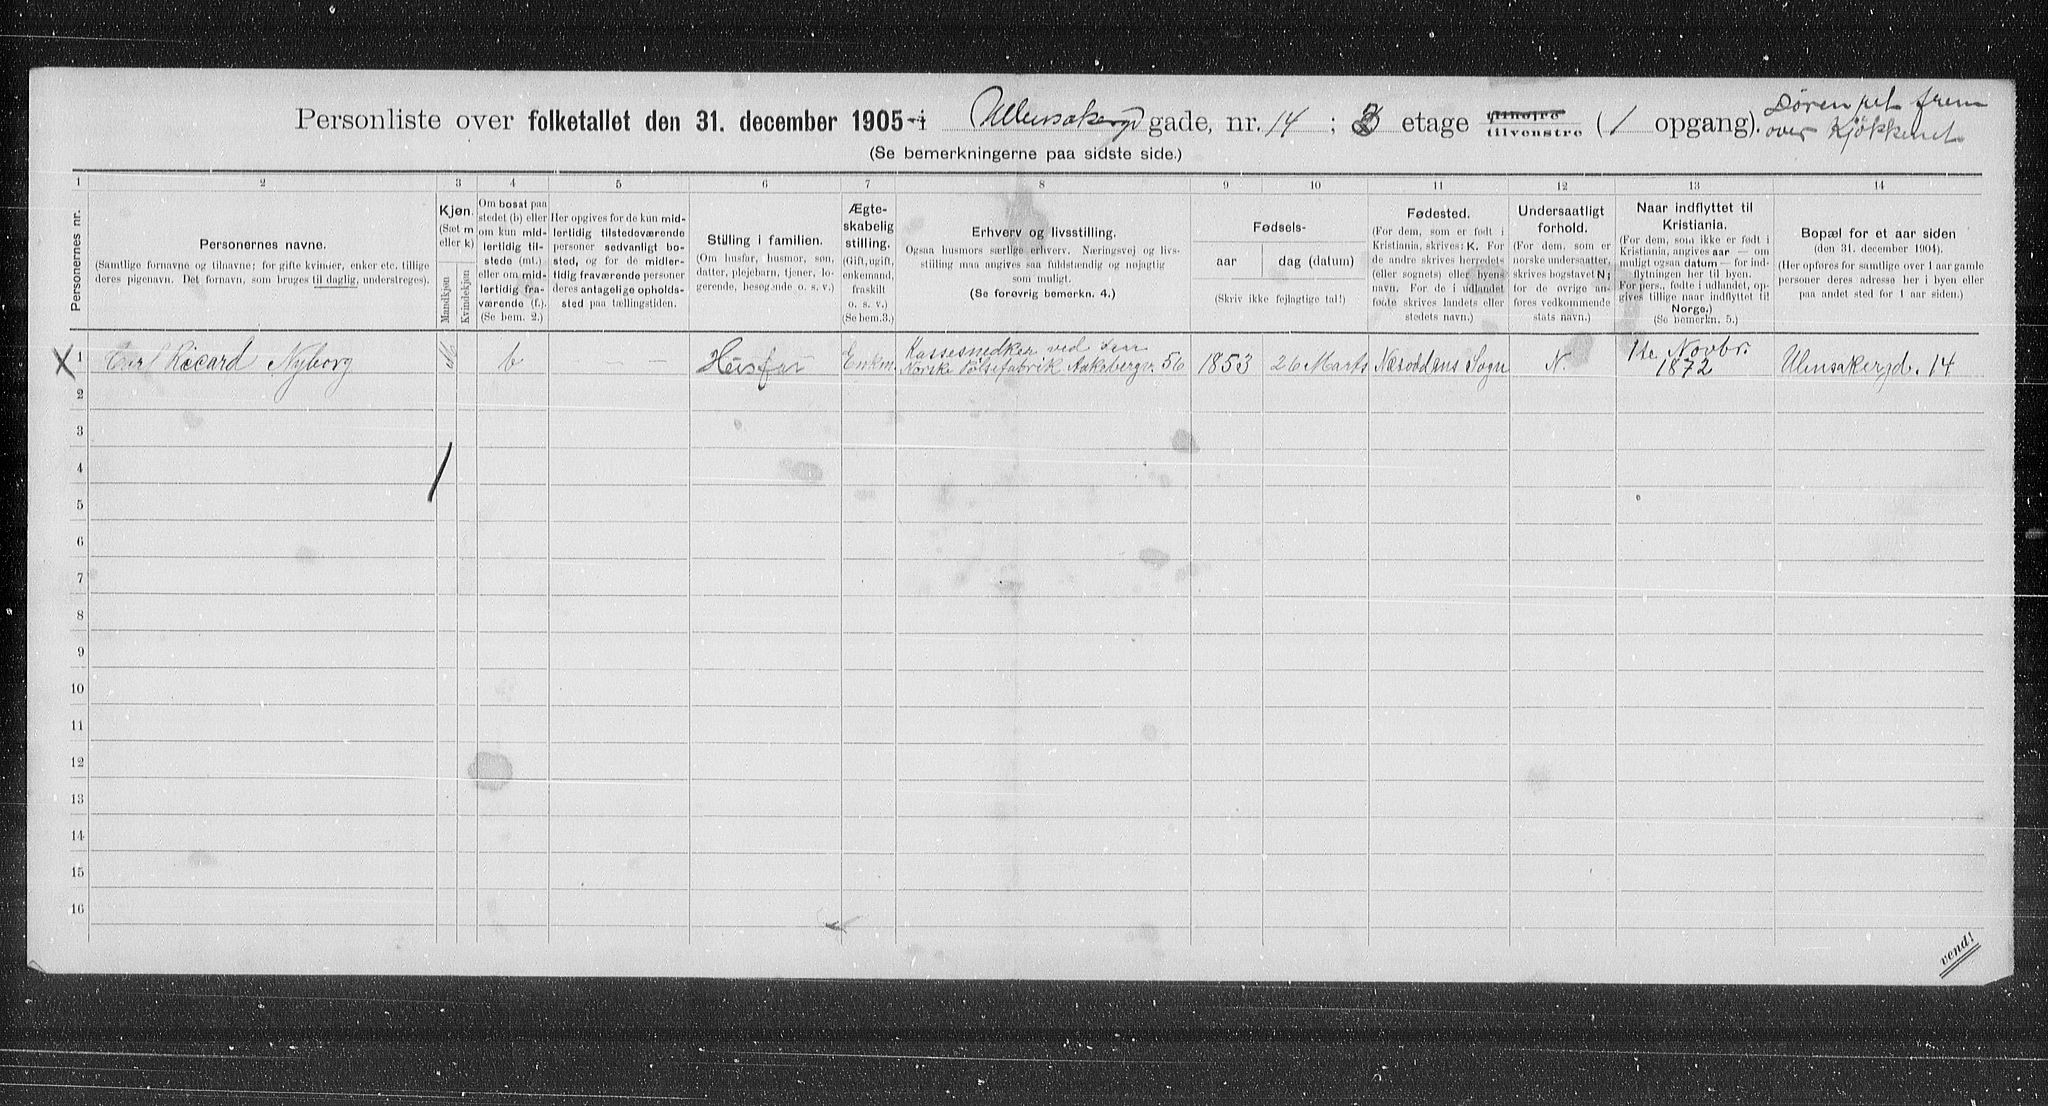 Personliste over folketallet den 31. december 1905 i Ullensakergd gade, nr. 14 ; 3 etage tilhøire tilvenstre (1 opgang). Døren ret frem
over Kjøkkenet
(Se bemerkningerne paa sidste side.)
1 2 3 4 5 6 7 8 9 10 11 12 13 14
Personernes nr.
Personernes navne.
(Samtlige fornavne og tilnavne; for gifte kvinder, enker etc. tillige
deres pigenavn. Det fornavn, som bruges til daglig, understreges).
Kjøn.
(Sæt m
eller k)
Mandkjøn
Kvindekjøn
Om bosat paa
stedet (b) eller
om kun mid-
lertidig til-
stede (mt.)
eller om mid-
lertidig fra-
værende (f.).
(Se bem. 2.)
Her opgives for de kun mid-
lertidig tilstedeværende
personer sedvanligt bo-
sted, og for de midler-
tidig fraværende personer
deres antagelige opholds-
sted paa tællingstiden.
Stilling i familien.
(Om husfar, husmor, søn,
datter, plejebarn, tjener, lo-
gerende, besøgende o. s. v.)
Ægte-
skabelig
stilling.
(Gift, ugift,
enkemand,
fraskilt
o. s. v.)
(Se bem.3.)
Erhverv og livsstilling.
Ogsaa husmors særlige erhverv. Næringsvej og livs-
stilling maa angives saa fuldstændig og nøjagtig
som muligt.
(Se forøvrig bemerkn. 4.)
Fødsels-
aar dag (datum)
(Skriv ikke fejlagtige tal!)
Fødested.
(For dem, som er født i
Kristiania, skrives: K. For
de andre skrives herredets
(eller sognets) eller byens
navn. For de i udlandet
fødte skrives landets eller
stedets navn.)
Undersaatligt
forhold.
(For dem, som er
norske undersaatter,
skrives bogstavet N;
for de øvrige an-
føres vedkommende
stats navn.)
Naar indflyttet til
Kristiania.
(For dem, som ikke er født i
Kristiania, angives aar — om
muligt ogsaa datum — for ind-
flytningen her til byen.
For pers., fødte i udlandet, op-
gives tillige naar indflyttet til
Norge.)
(Se bemerkn. 5.)
Bopæl for et aar siden
(den 31. december 1904).
(Her opføres for samtlige over 1 aar gamle
personer deres adresse her i byen eller
paa andet sted for 1 aar siden.)
X 1 Carl Ricard Nyborg M b — — Husfar Enkm. Kassesnedker ved den
Norske Pølsefabrik Aakebergv. 56 1853 26 Marts Næsoddens Sogn N. 1te Novbr.
1872 Ulensakergd. 14
2
3
4
5
6
7
8
9
10
11
12
13
14
15
16
vend!